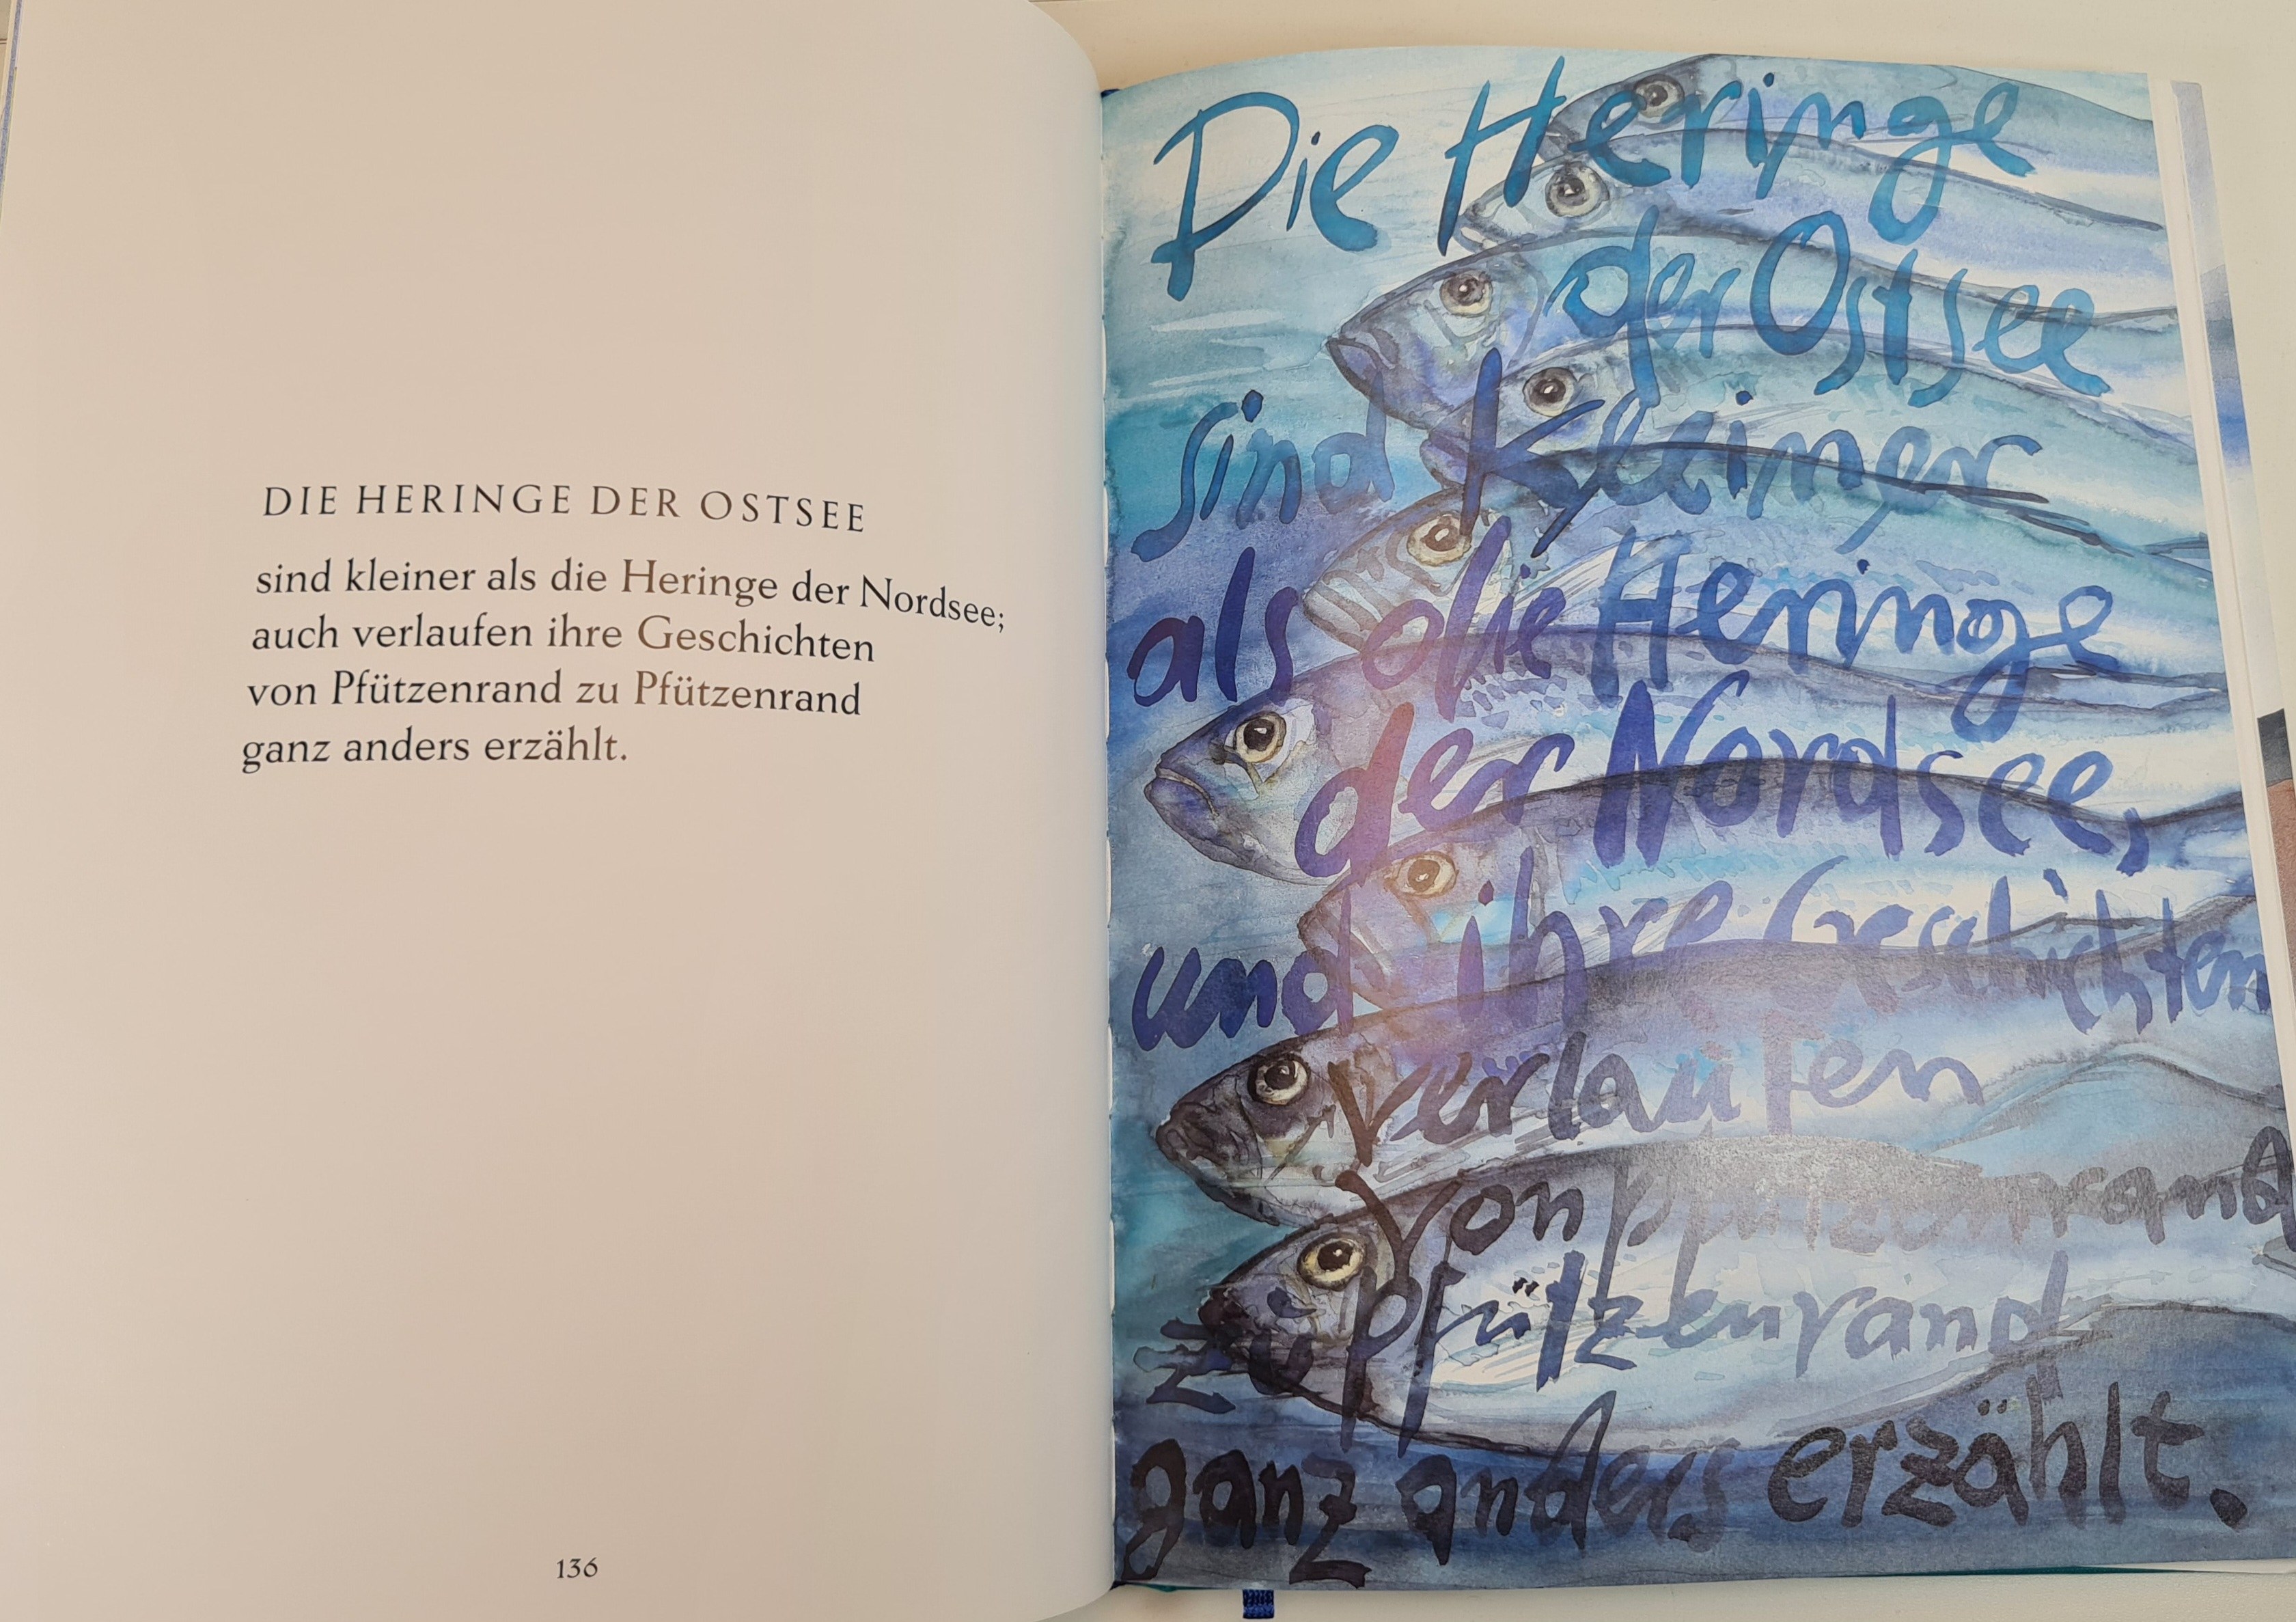 DIE HERINGE DER OSTSEE
sind kleiner als die Heringe der Nordsee;
auch verlaufen ihre Geschichten
von Pfützenrand zu Pfützenrand
ganz anders erzählt.
136
Die Heringe
der Ostsee
sind kleiner
als die Heringe
der Nordsee,
und ihre Geschichten
verlaufen
von Pfützenrand
zu Pfützenrand
ganz anders erzählt.